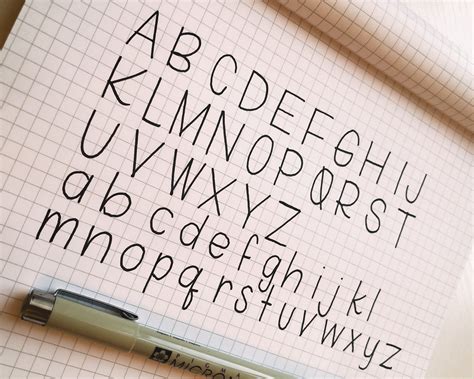 ABCDEFGHIJ
KLMNOPQRST
UVWXYZ
abcdefghijkl
mnopqrstuvwxyz
MICRON